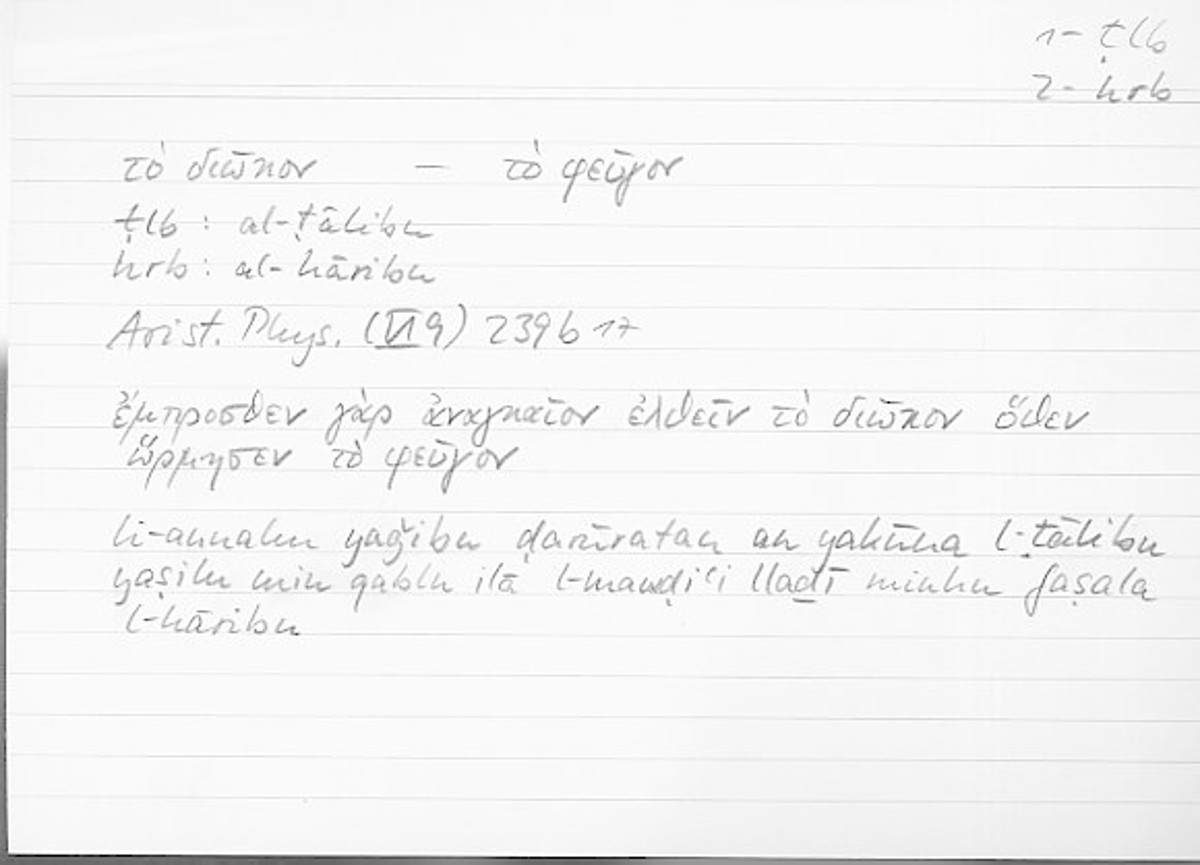 1- ṭlb
2- hrb
τὸ διῶκον — τὸ φεῦγον
ṭlb : al-ṭālibu
hrb : al-hāribu
Arist. Phys. (VI 9) 239 b 17
ἔμπροσθεν γὰρ ἀναγκαῖον ἐλθεῖν τὸ διῶκον ὅθεν
ὥρμησεν τὸ φεῦγον
li-annahu yaǧibu ḍarūratan an yakūna l-ṭālibu
yaṣilu min qablu ilā l-mawḍiʿi llaḏī minhu faṣala
l-hāribu